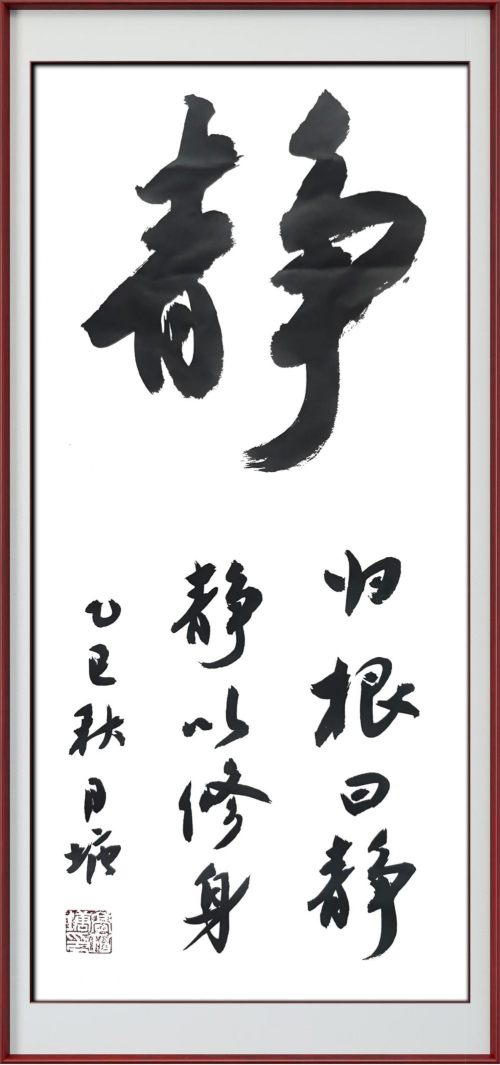 静
归根曰静
静以修身
乙巳秋月塘